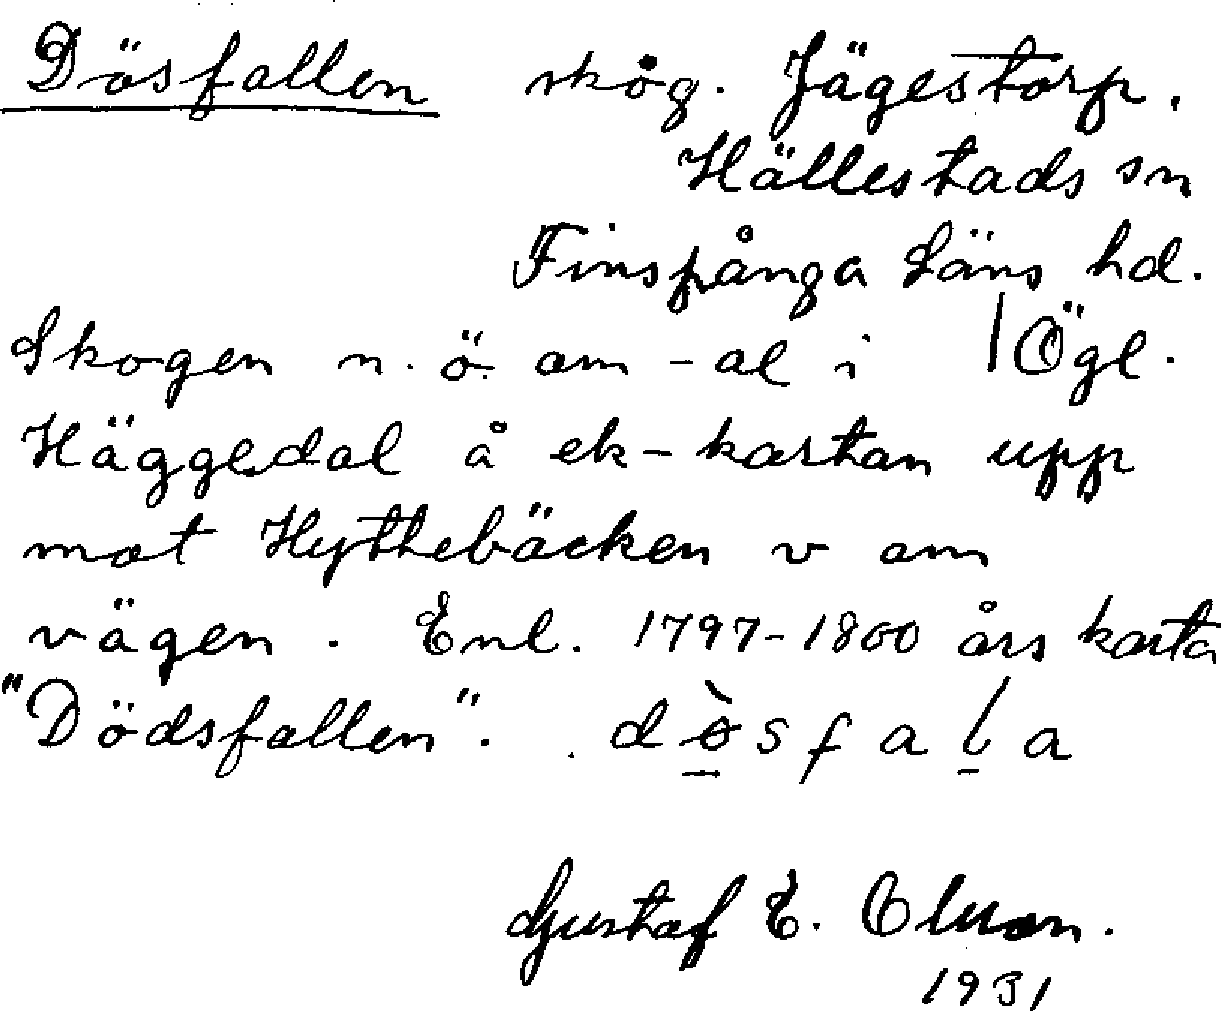 Dösfallen skog. Jägestorp.
Hällestads sn
Finspånga Läns hd.
Skogen n. ö. om -al i | Ögl.
Häggedal å ek-kartan upp
mot Hyttebäcken v om
vägen. Enl. 1797-1800 års karta
"Dödsfallen". dòsfala
Gustaf E. Olsson.
1931